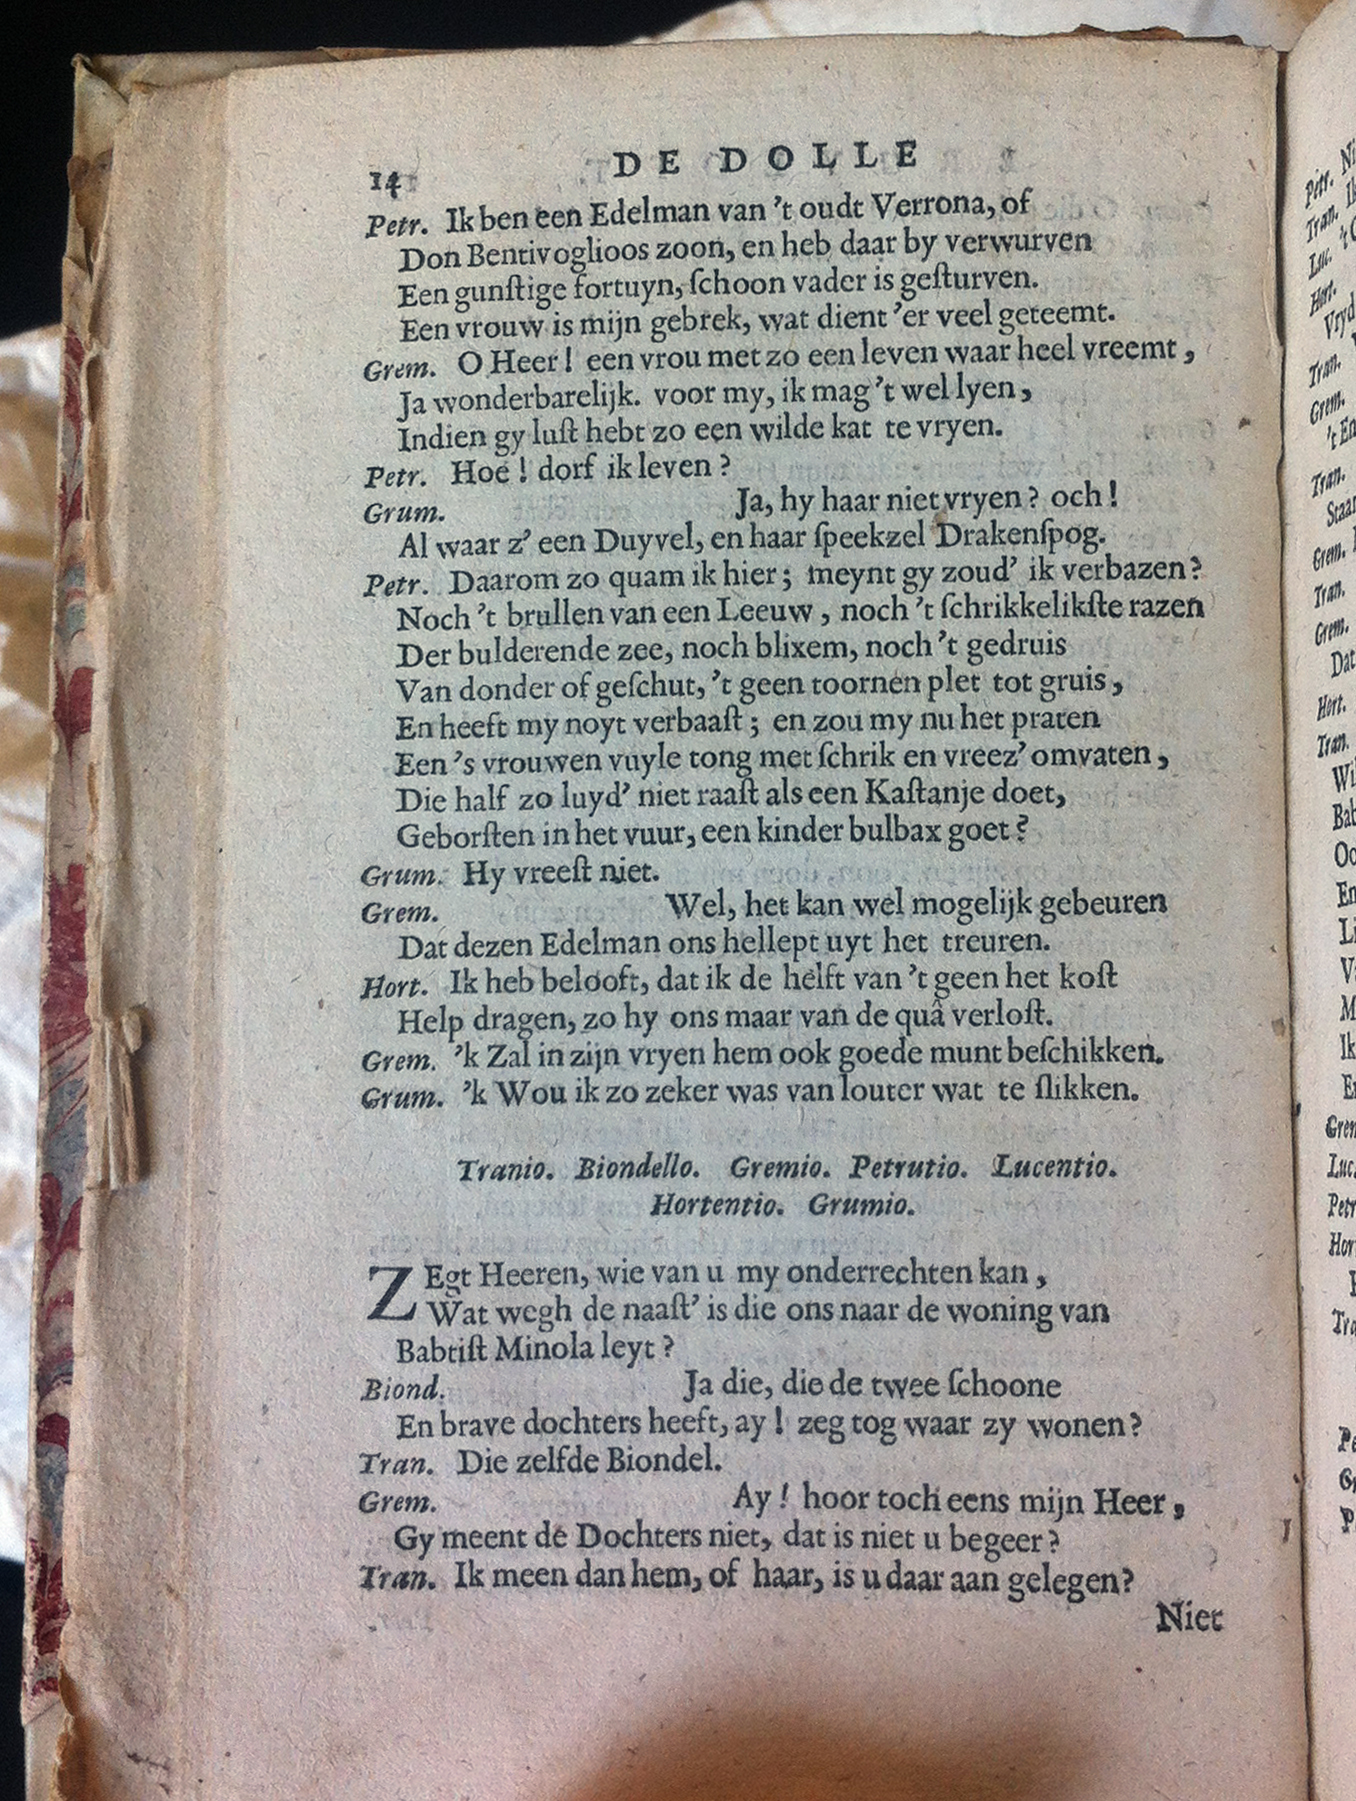 14 DE DOLLE
Petr. Ik ben een Edelman van 't oudt Verrona, of
Don Bentivoglioos zoon, en heb daar by verwurven
Een gunſtige fortuyn, ſchoon vader is geſturven.
Een vrouw is mijn gebrek, wat dient 'er veel geteemt.
Grem. O Heer! een vrou met zo een leven waar heel vreemt,
Ja wonderbarelijk. voor my, ik mag 't wel lyen,
Indien gy luſt hebt zo een wilde kat te vryen.
Petr. Hoe! dorf ik leven?
Grum. Ja, hy haar niet vryen? och!
Al waar z' een Duyvel, en haar ſpeekzel Drakenſpog.
Petr. Daarom zo quam ik hier; meynt gy zoud' ik verbazen?
Noch 't brullen van een Leeuw, noch 't ſchrikkelikſte razen
Der bulderende zee, noch blixem, noch 't gedruis
Van donder of geſchut, 't geen toornen plet tot gruis,
En heeft my noyt verbaaſt; en zou my nu het praten
Een 's vrouwen vuyle tong met ſchrik en vreez' omvaten,
Die half zo luyd' niet raaſt als een Kaſtanje doet,
Geborſten in het vuur, een kinder bulbax goet?
Grum. Hy vreeſt niet.
Grem. Wel, het kan wel mogelijk gebeuren
Dat dezen Edelman ons hellept uyt het treuren.
Hort. Ik heb belooft, dat ik de helft van 't geen het koſt
Help dragen, zo hy ons maar van de quâ verloſt.
Grem. 'k Zal in zijn vryen hem ook goede munt beſchikken.
Grum. 'k Wou ik zo zeker was van louter wat te ſlikken.
Tranio. Biondello. Gremio. Petrutio. Lucentio.
Hortentio. Grumio.
ZEgt Heeren, wie van u my onderrechten kan,
Wat wegh de naaſt' is die ons naar de woning van
Babtiſt Minola leyt?
Biond. Ja die, die de twee ſchoone
En brave dochters heeft, ay! zeg tog waar zy wonen?
Tran. Die zelfde Biondel.
Grem. Ay! hoor toch eens mijn Heer,
Gy meent de Dochters niet, dat is niet u begeer?
Tran. Ik meen dan hem, of haar, is u daar aan gelegen?
Niet